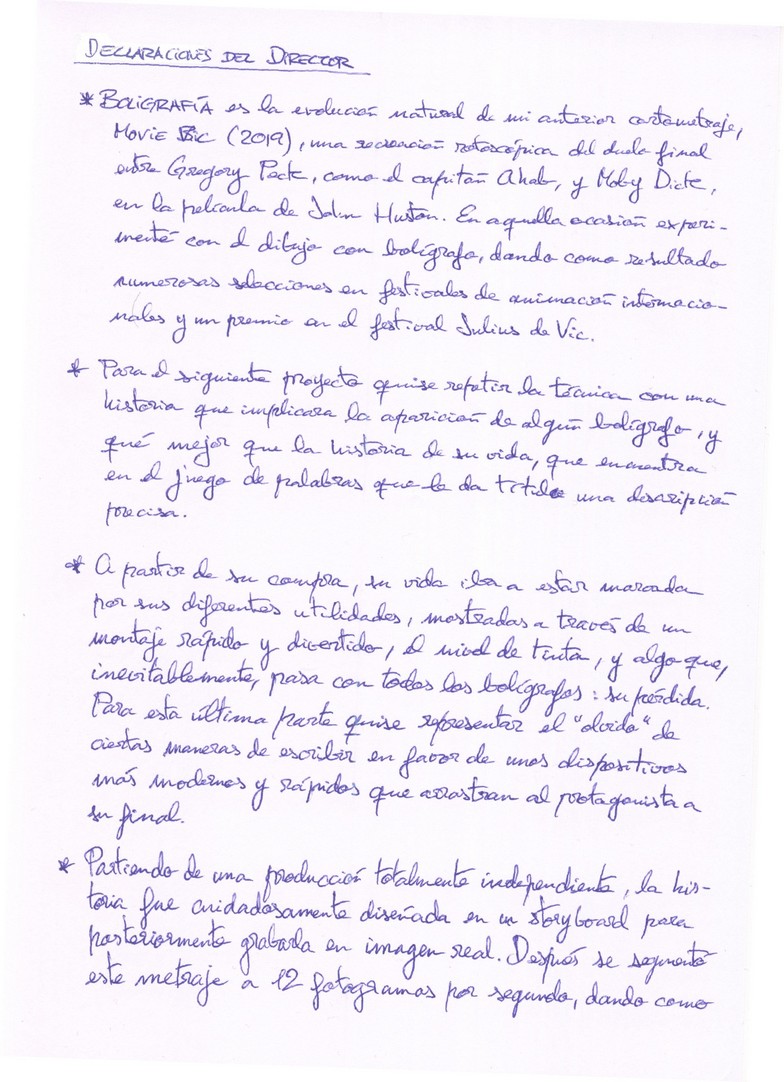 DECLARACIONES DEL DIRECTOR
* BOLIGRAFÍA es la evolución natural de mi anterior cortometraje,
MOVIE BIC (2019), una recreación rotoscópica del duelo final
entre Gregory Peck, como el capitán Ahab, y Moby Dick,
en la película de John Huston. En aquella ocasión experi-
menté con el dibujo con bolígrafo, dando como resultado
numerosas selecciones en festivales de animación internacio-
nales y un premio en el festival Julius de Vic.
* Para el siguiente proyecto quise repetir la técnica con una
historia que implicara la aparición de algún bolígrafo, y
qué mejor que la historia de su vida, que encuentra
en el juego de palabras que le da título una descripción
precisa.
* A partir de su compra, su vida iba a estar marcada
por sus diferentes utilidades, mostradas a través de un
montaje rápido y divertido, el nivel de tinta, y algo que,
inevitablemente, pasa con todos los bolígrafos: su pérdida.
Para esta última parte quise representar el "olvido" de
ciertas maneras de escribir en favor de unos dispositivos
más modernos y rápidos que arrastran al protagonista a
su final.
* Partiendo de una producción totalmente independiente, la his-
toria fue cuidadosamente diseñada en un storyboard para
posteriormente grabarla en imagen real. Después se segmentó
este metraje a 12 fotogramas por segundo, dando como